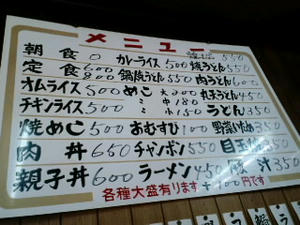 メニュー
朝食 0 カレーライス 500 焼うどん 550
定食 600 800 鍋焼うどん 550 肉うどん 600
オムライス 500 めし 大 200 丸子うどん 450
チキンライス 500 〃 中 180
〃 小 150 うどん 350
焼めし 500 おむすび 100 野菜いため 350
肉丼 650 チャンポン 550 目玉 350
親子丼 600 ラーメン 450 汁 350
各種大盛有ります + 100円です